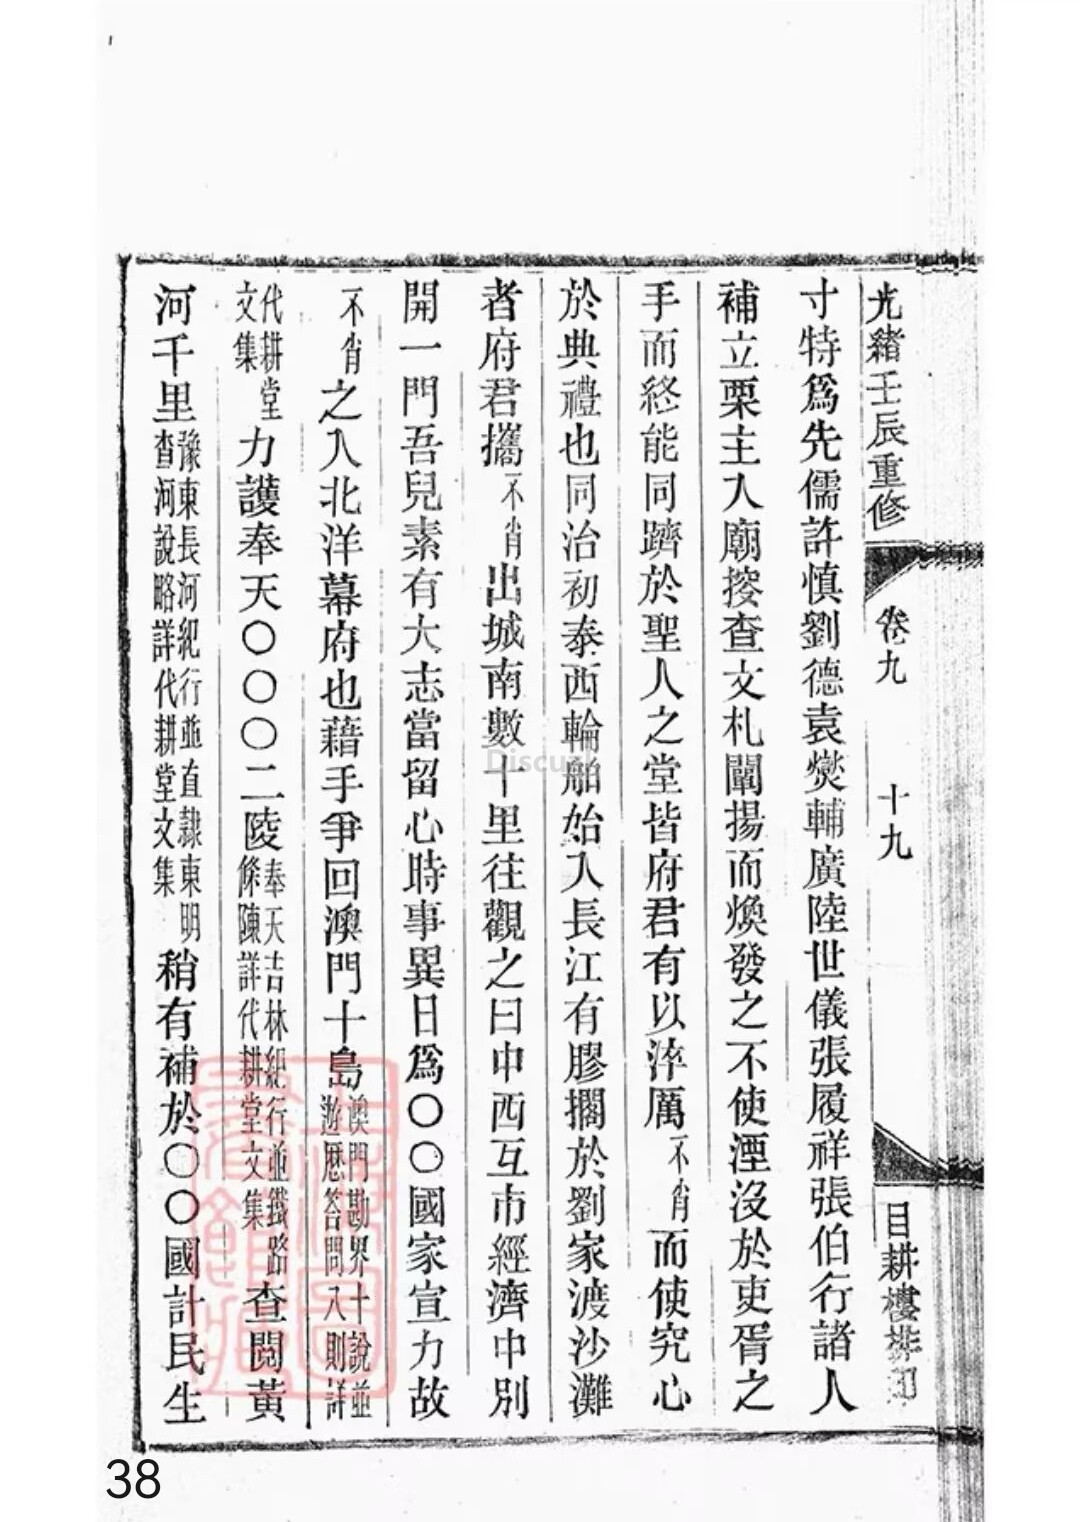 光緒壬辰重修
卷九
十九
目耕樓排印
寸特爲先儒許慎劉德袁燮輔廣陸世儀張履祥張伯行諸人
補立栗主入廟按查文札闡揚而煥發之不使湮沒於吏胥之
手而終能同躋於聖人之堂皆府君有以淬厲不肖而使究心
於典禮也同治初泰西輪船始入長江有膠擱於劉家渡沙灘
者府君攜不肖出城南數十里往觀之曰中西互市經濟中別
開一門吾兒素有大志當留心時事異日爲〇〇國家宣力故
不肖之入北洋幕府也藉手爭回澳門十島澳門勘界十說並遊歷答問八則詳
代耕堂文集力護奉天〇〇〇二陵奉天吉林紀行並鐵路條陳詳代耕堂文集查閱黃
河千里豫東長河紀行並直隸東明查河說略詳代耕堂文集稍有補於〇〇國計民生
上海圖書館藏
Discuz!
38